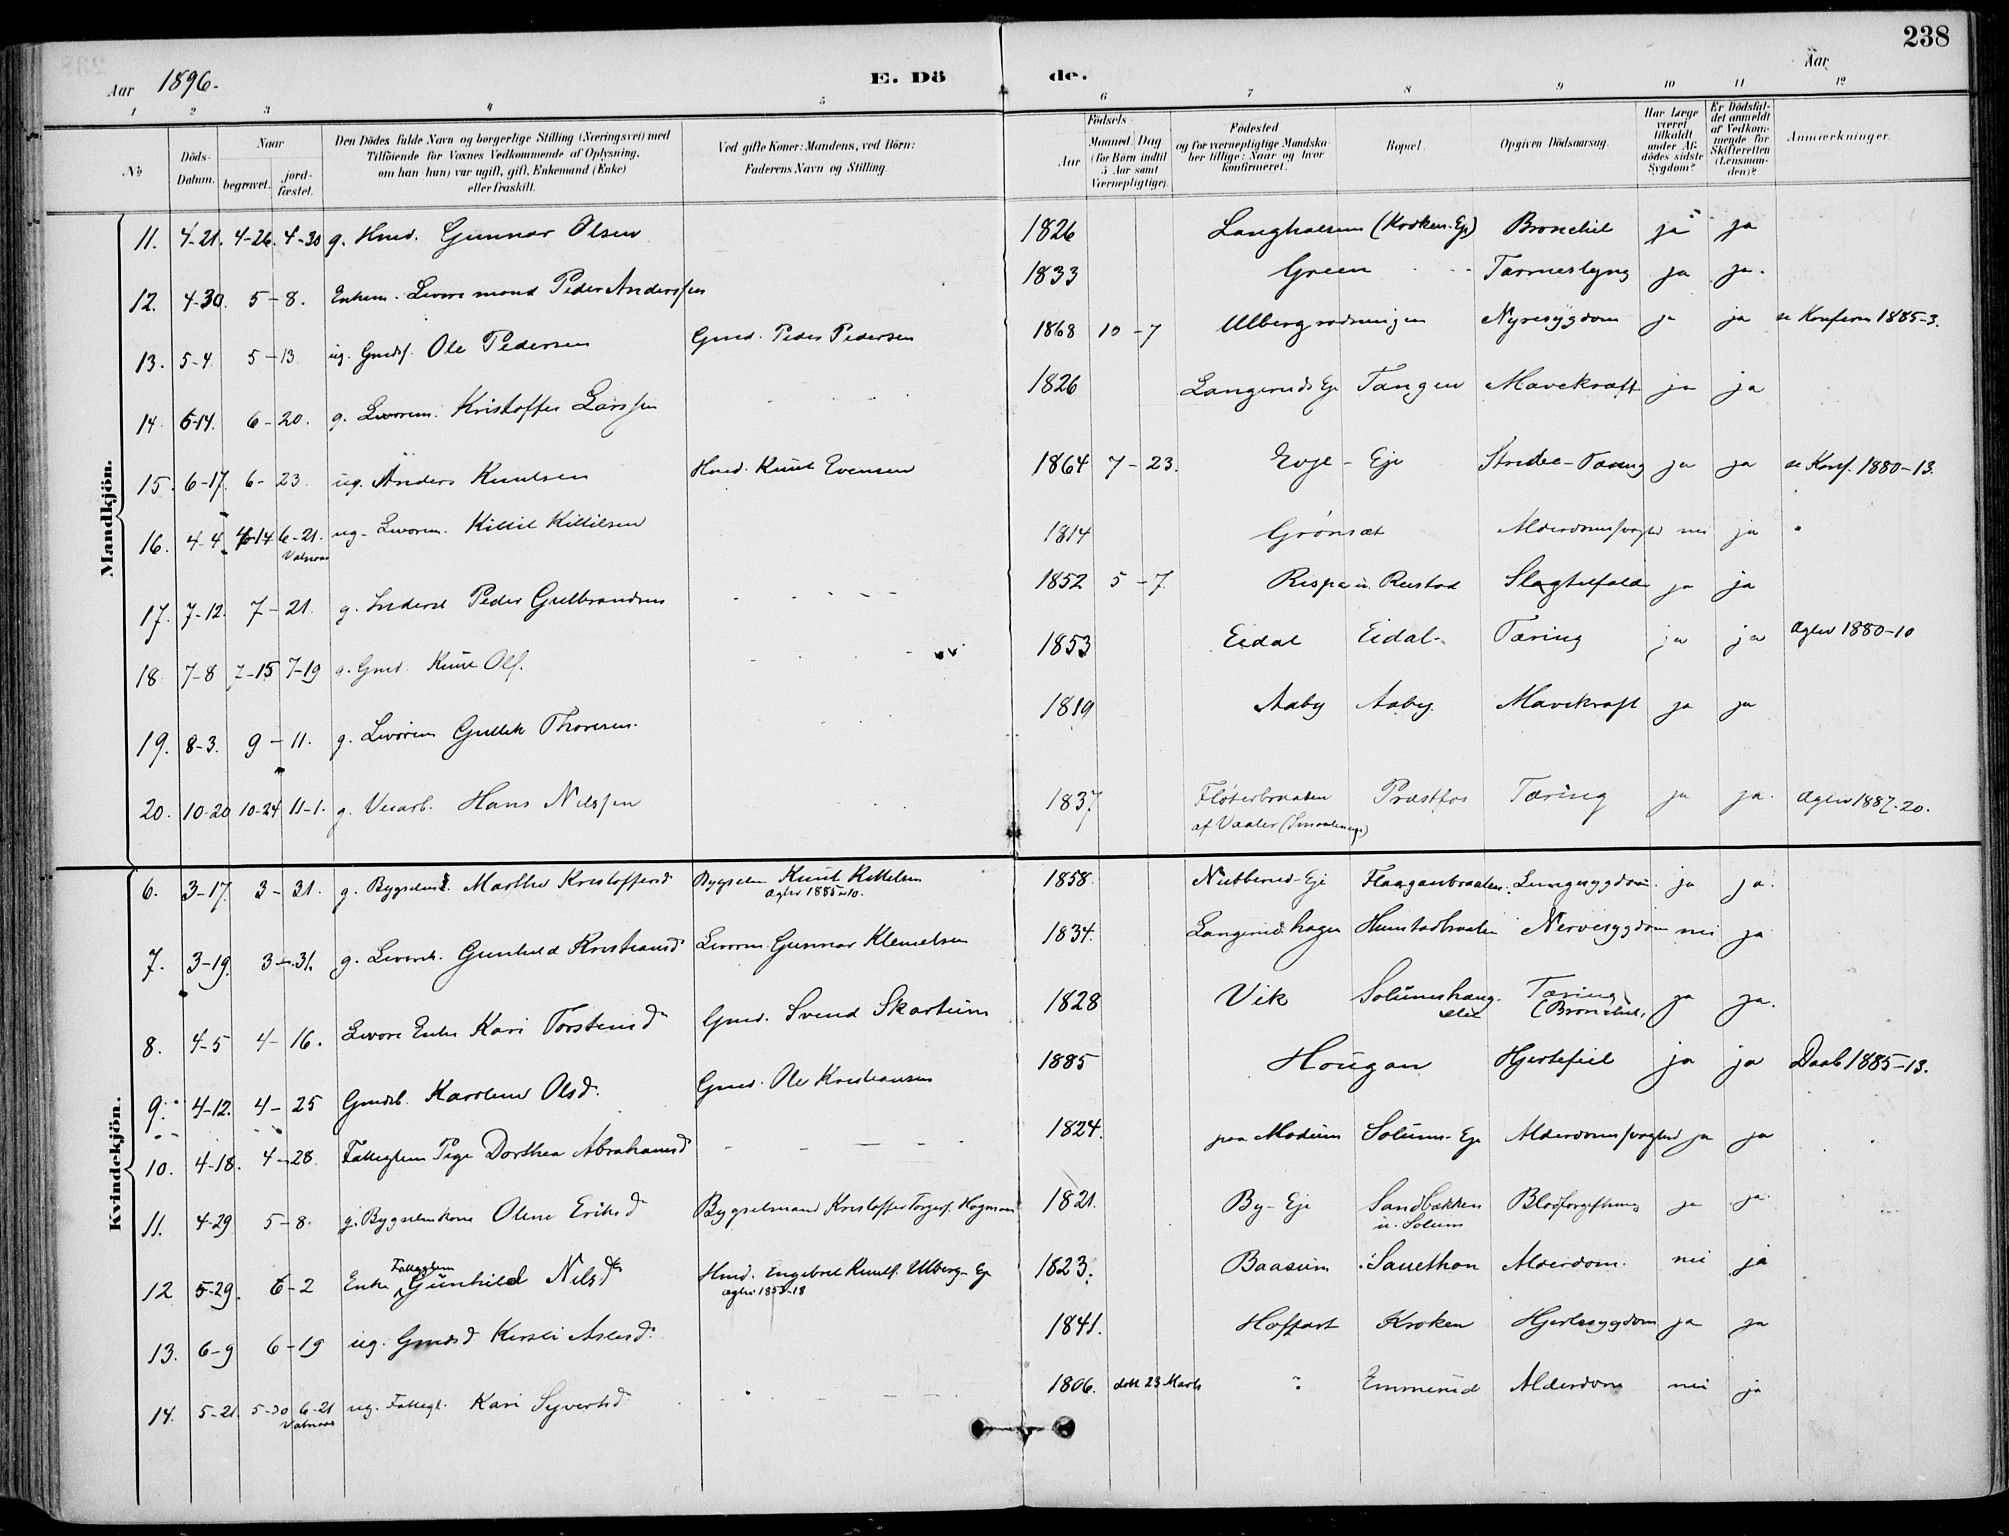 238
Aar 1896. E. Dö de. Aar
1 2 3 4 5 6 7 8 9 10 11 12
No Döds-Datum. Naar begravet. jord-fæstet. Den Dödes fulde Navn og borgerlige Stilling (Næringsvei) med Tilföiende for Voxnes Vedkommende af Oplysning, om han (hun) var ugift, gift, Enkemand (Enke) eller fraskilt. Ved gifte Koner: Mandens, ved Börn: Faderens Navn og Stilling. Födsels- Aar Maaned Dag (for Börn indtil 5 Aar samt Værnepligtige). Födested og for værnepligtige Mandskaber tillige: Naar og hvor konfirmeret. Bopæl. Opgiven Dödsaarsag. Har Læge været tilkaldt under Afdödes sidste Sygdom? Er Dödsfaldet anmeldt af Vedkommende for Skifteretten (Lensmanden)? Anmærkninger.
Mandkjön.
11. 4-21. 4-26. 4-30 g. Hmd. Gunnar Olsen 1826 (Kroken-Eje) Bronchit ja ja
12. 4-30. 5-8. Enkem. Peder Anderssen 1833 Green ja ja.
13. 5-4. 5-13. ug. Gmds. Ole Pedersen Gmd. Peder Pedersen 1868 10-7 Ulbergrodningen Nyresygdom ja ja se Konfirm 1885-3.
14. 6-14. 6-20. g. Levorem. Kristoffer Larssen 1826 Langeruds Eje Tangen Mavekræft ja ja
15. 6-17. 6-23. ug. Anders Knutsen Hmd. Knut Evensen 1864 7-23. Eje Strube-Tæring ja ja se Konf. 1880-13.
16. 4-4. 4-14 6-21. Vatnaas ug. Levorem. Kittil Kittilsen 1814 Grønsæt nei ja
17. 7-12. 7-21. g. Inderst Peder Gulbrandsen 1852 5-7. Rispe u. Rustad ja ja
18 7-8 7-15 7-19 g. Gmd. Knut Ols. 1853 Eidal Eidal Tæring ja ja Ægtev 1880-10
19. 8-3. 9-11. g. Levorem Gullik Thoresen. 1819 Aaby Aaby Mavekræft ja ja
20. 10-20 10-24 11-1. g. Veiarb. Hans Nilssen 1837 Fløterbraaten af Vaaler (Smaalenene) Præstfos Tæring ja ja. Ægtev 1887-20.
Kvindekjön.
6. 3-17. 3-31. g. Marthe Kristoffersd Bygselm Knut Kittelsen Ægtev 1885-10. 1858 Nubberud-Eje Flaaganbraaten Lungesygdom. ja ja.
7. 3-19. 3-31. g. Gunhild Kristiansd Levorm. Gunnar Klemetsen 1834. Langeruds hagen Nervesygdom nei ja
8. 4-5 4-16. Levore Enke Kari Torstensd Gmd. Svend Skartum 1828 Vik Tæring (Bronchit) ja ja.
9. 4-12. 4-25 Gmdsb. Karoline Olsd. Gmd. Ole Kristiansen 1885 Hougan Hjertefeil ja ja Daab 1885-13.
10. 4-18. 4-28. Fatteglem Pige Dorthea Abrahamsd 1824. paa Modum Solums-Eje ja ja
11. 4-29 5-8. g. Bygselmkone Olene Eriksd Bygselmand Kristoffer 1821. By-Eje Sandbækken u. Solum Blodforgiftning ja ja.
12 5-29. 6-2 Enke Fatteglem Gunhild Nilsd Hmd. Engebret Knuts. Ulberg-Eje 1823. Baasum Sauethon Alderdom. nei ja
13. 6-9 6-19 ug. Gmdsd Kirsti Aslesd. 1841. Hoffart Kroken Hjertesygdom ja ja
14. 5-21. 5-30 6-21 Vatnaas ug. Fattegl. Kari Syvertsd 1806. døbt 23 Marts " Emmerud Alderdom nei ja